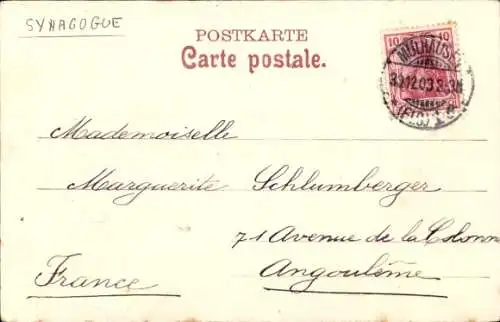 SYNAGOGUE
POSTKARTE
Carte postale.
10 10
MÜLHAUSEN
30.12.03
Mademoiselle
Marguerite Schlumberger
71 Avenue de la Colonne
Angoulême
France